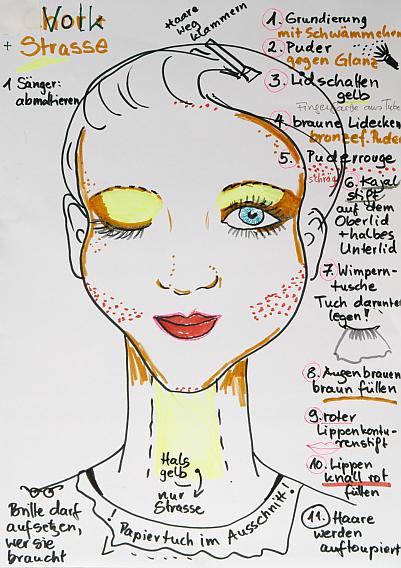 Volk
+ Strasse
1 Sänger:
abmalieren
Haare
weg
klammern
1. Grundierung
mit Schwämmchen
2. Puder
gegen Glanz
3. Lidschatten
gelb
Fingerfarbe aus Tube
4. braune Lidecken
bronzef. Puder
5. Puderrouge
schräg
6. Kajal
stift
auf dem
Oberlid
+ halbes
Unterlid
7. Wimpern-
tusche
Tuch darunter
legen!
8. Augenbrauen
braun füllen
9. roter
Lippenkontu-
renstift
10. Lippen
knallrot
füllen
11. Haare
werden
auftoupiert
Hals
gelb
nur
Strasse
Papiertuch im Ausschnitt!
Brille darf
aufsetzen,
wer sie
braucht